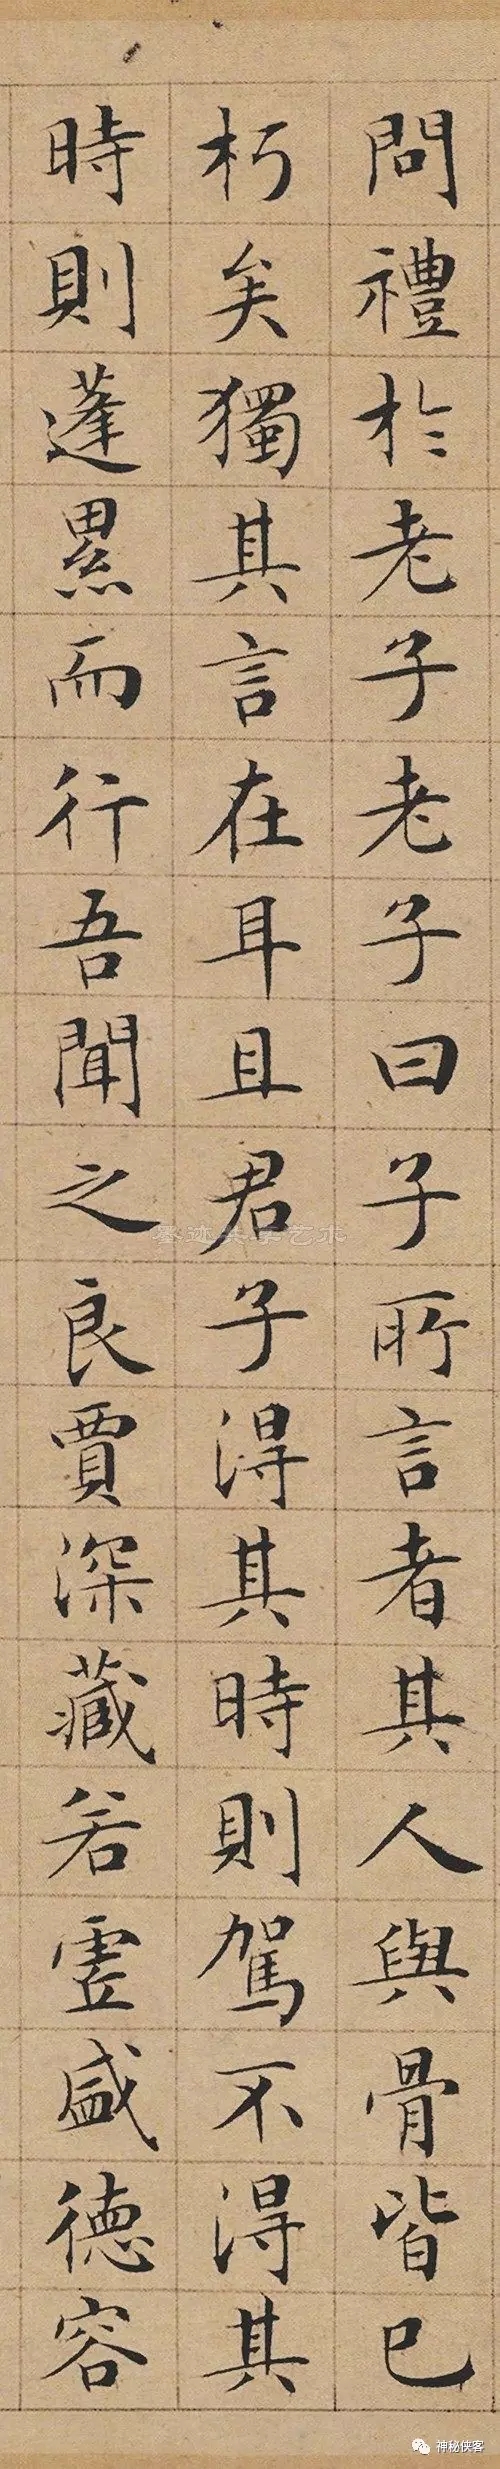 問禮於老子老子曰子所言者其人與骨皆已
朽矣獨其言在耳且君子得其時則駕不得其
時則蓬累而行吾聞之良賈深藏若虛盛德容
神秘侠客